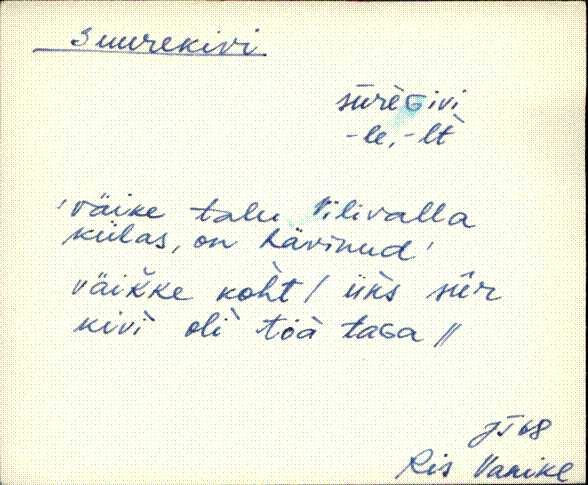 Suurekivi
sūreGivi
-le, -lt
'väike talu Vilivalla
külas, on hävinud'
väikke koht / üks sūr
kivi oli töa taga //
JT 68
Ris Vanike